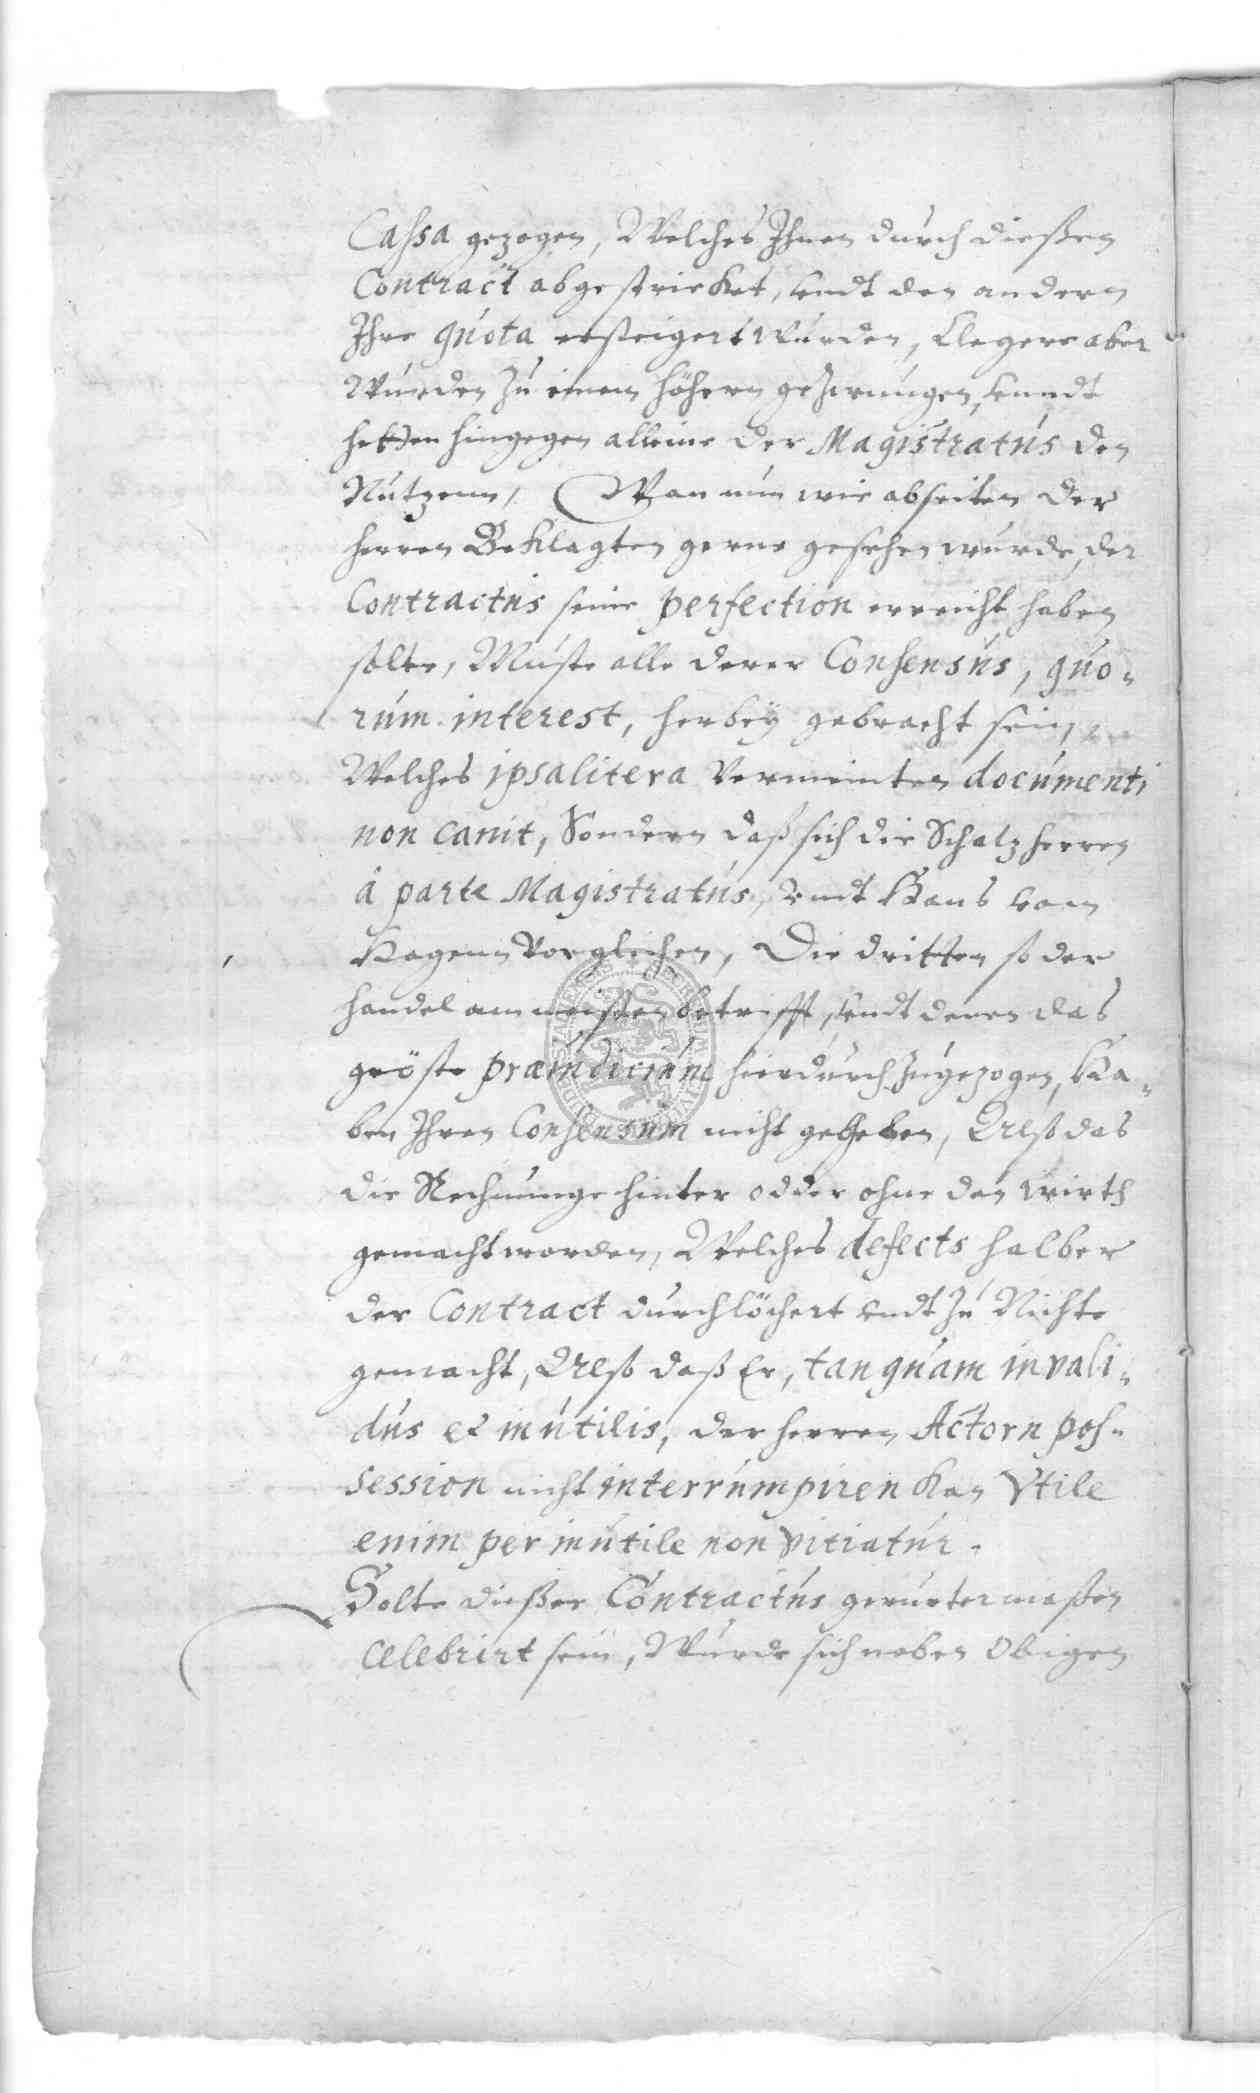 Cassa gezogen, Welches Ihnen durch dießen
Contract abgestricket, undt den andern
Ihre quota ersteigert wurden, Clegere aber
Wurden zu einem höhern gezwungen, unndt
hetten hingegen alleine der Magistratus den
Nutzenn, Wan nun wie abseiten der
herren Beklagten gerne gesehen wurde, der
Contractus seine perfection erreicht haben
solte, Muste alle derer Consensus, quo-
rum interest, herbey gebracht sein,
Welches ipsa litera vermeinten documenti
non canit, Sondern daß sich die Schatzherren
à parte Magistratus, undt Hans vom
Hagenn vorglichen, Die dritten so der
handel am meisten betrifft, undt denen das
gröste præiudicium hierdurch zugezogen, Ha-
ben Ihren Consensum nicht gegeben, Also das
die Rechnunge hinter odder ohne den wirth
gemacht worden, Welches defects halber
der Contract durchlöchert undt zu Nichte
gemacht, Also daß Er, tanquam invali-
dus et inutilis, der herren Actorn pos-
session nicht interrumpiren kan Vtile
enim per inutile non vitiatur.
Solte dießer Contractus gerurter maßen
celebrirt sein, Wurde sich neben Obigen